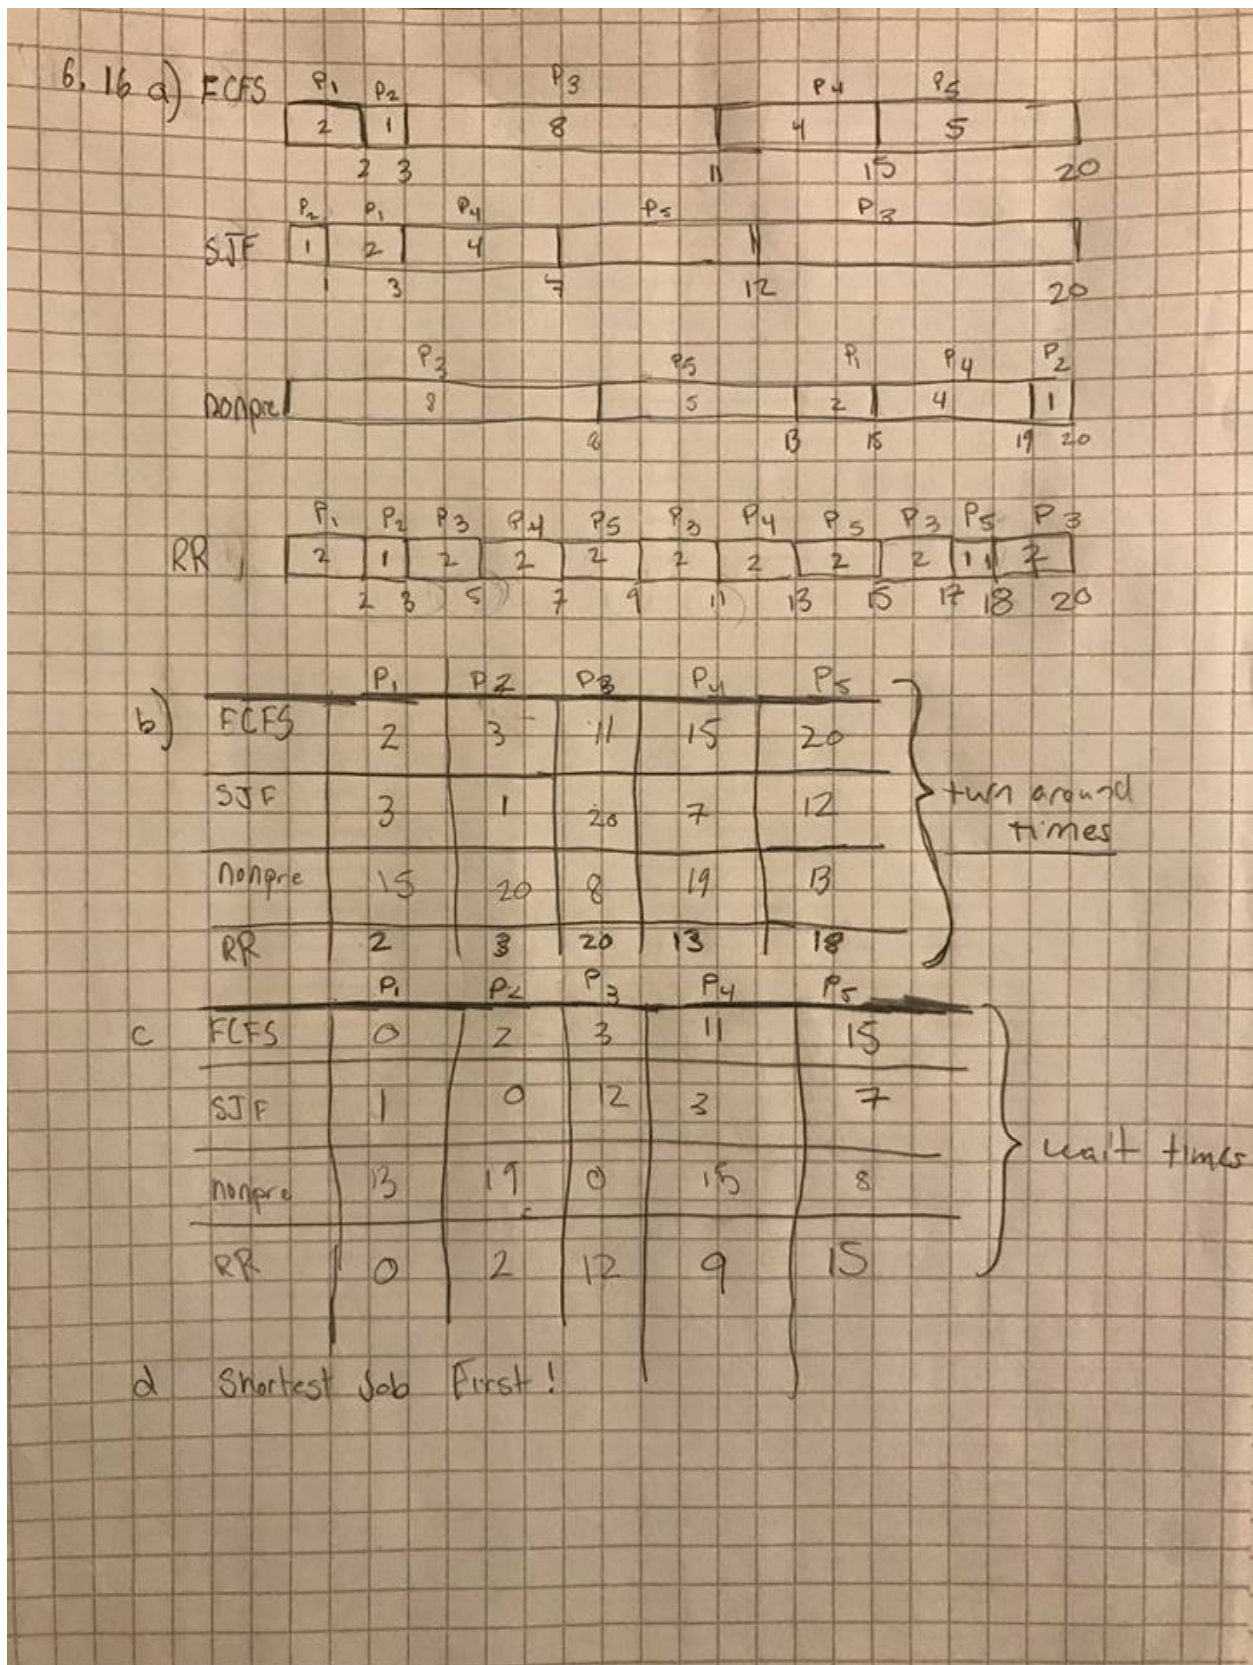 6.16 a) FCFS P1 P2 P3 P4 P5
2 1 8 4 5
2 3 11 15 20
SJF P2 P1 P4 P5 P3
1 2 4
1 3 7 12 20
nonpre P3 P5 P1 P4 P2
8 5 2 4 1
8 13 15 19 20
RR P1 P2 P3 P4 P5 P3 P4 P5 P3 P5 P3
2 1 2 2 2 2 2 2 2 1 2
2 3 5 7 9 11 13 15 17 18 20
P1 P2 P3 P4 P5
b) FCFS 2 3 11 15 20
SJF 3 1 20 7 12
turn around
times
nonpre 15 20 8 19 13
RR 2 3 20 13 18
P1 P2 P3 P4 P5
c FCFS 0 2 3 11 15
SJF 1 0 12 3 7
wait times
nonpre 13 19 0 15 8
RR 0 2 12 9 15
d Shortest Job First!